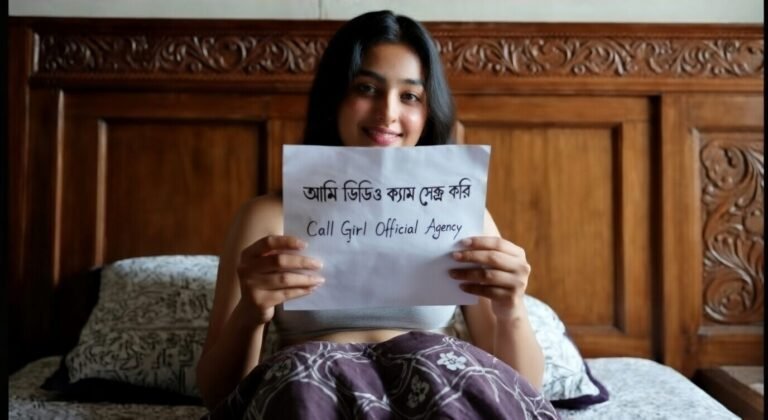 আমি ভিডিও ক্যাম সেক্স করি
Call Girl Official Agency